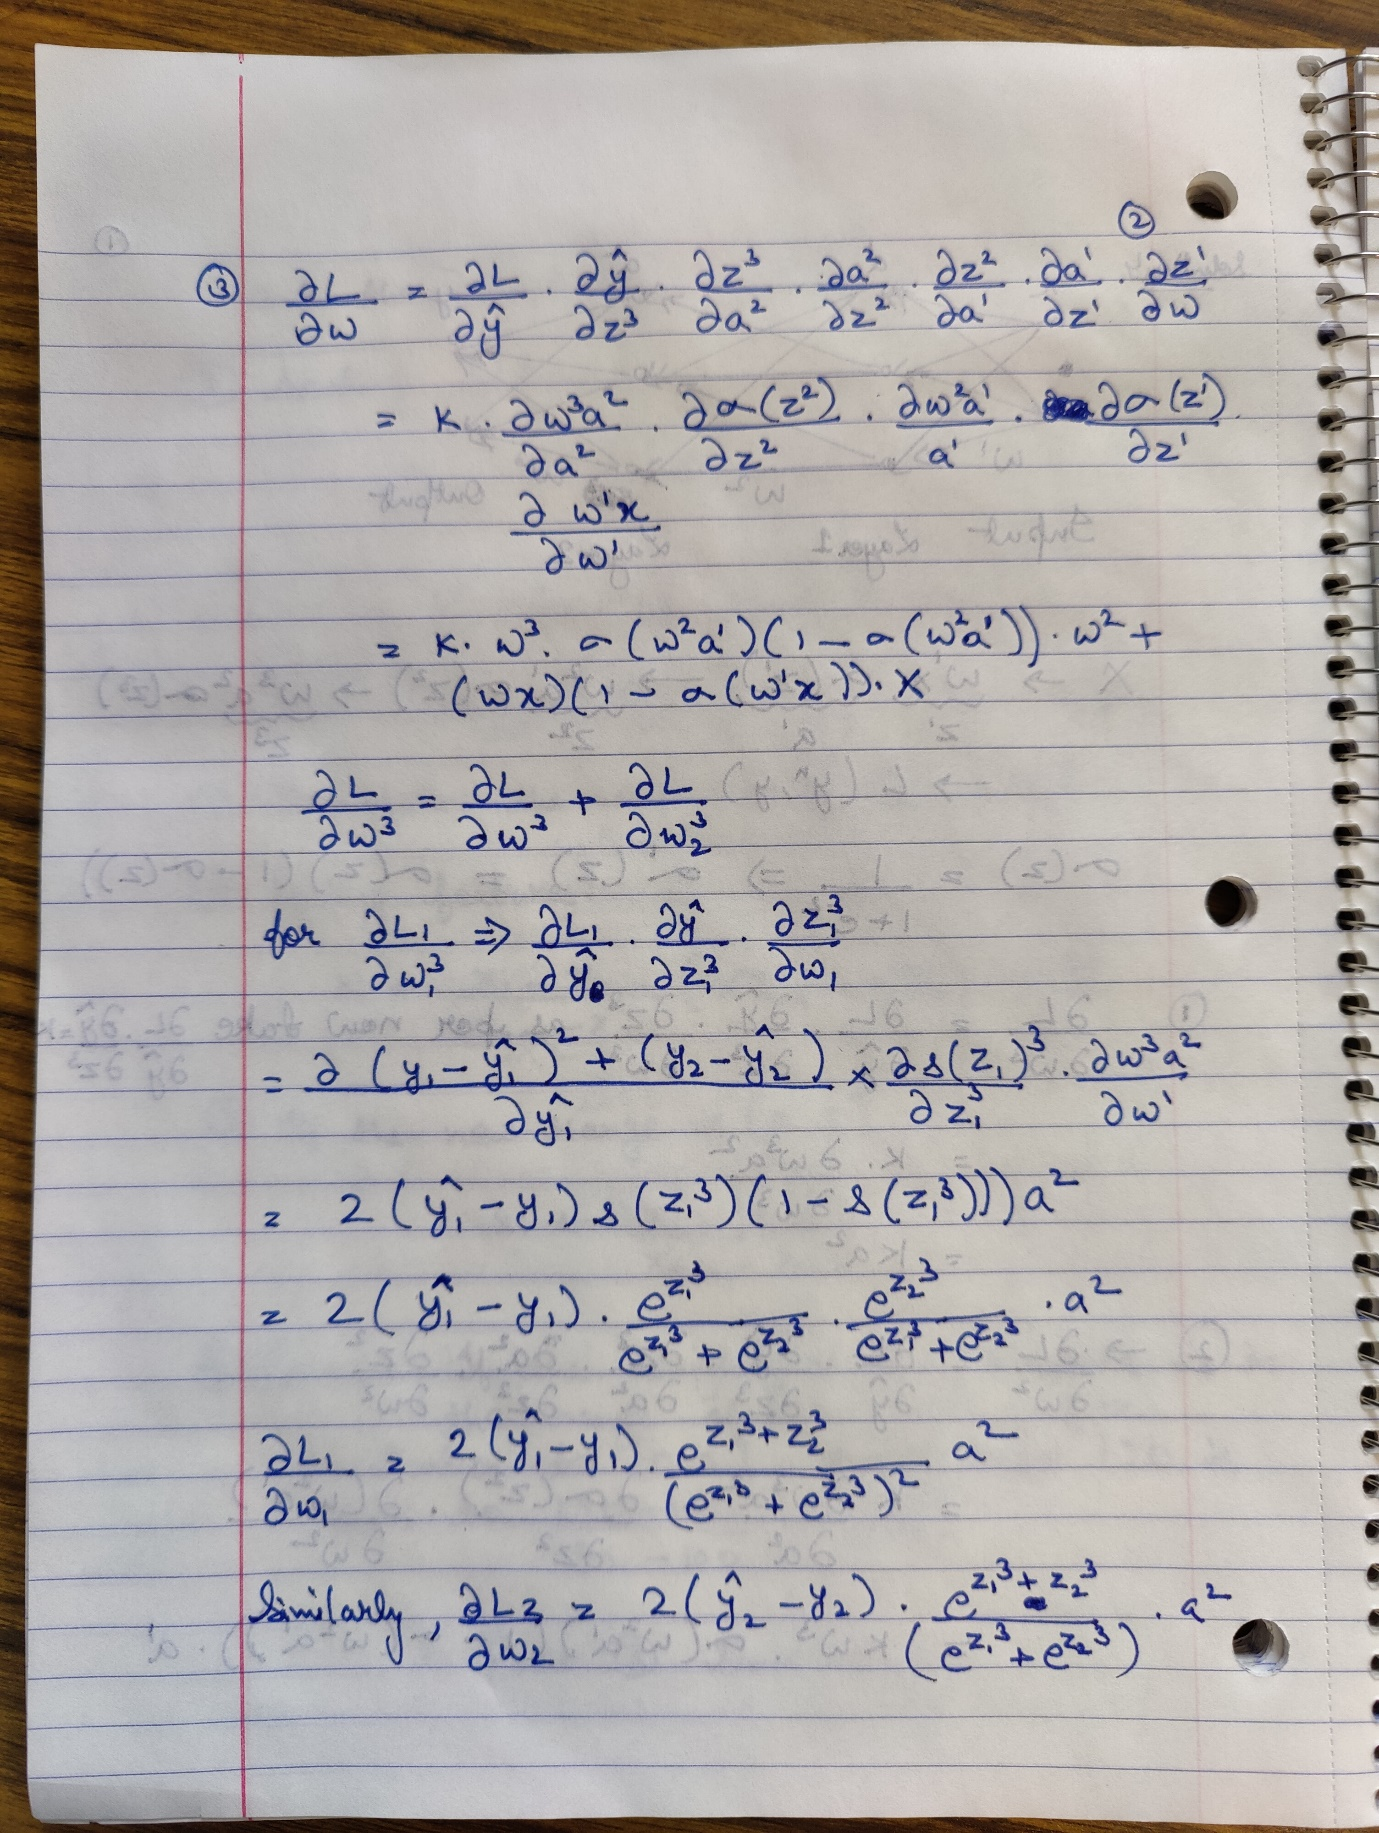 ②
③ ∂L/∂w = ∂L/∂ŷ · ∂ŷ/∂z³ · ∂z³/∂a² · ∂a²/∂z² · ∂z²/∂a¹ · ∂a¹/∂z¹ · ∂z¹/∂w
= K · ∂w³a²/∂a² · ∂σ(z²)/∂z² · ∂w²a¹/a¹ · ∂σ(z¹)/∂z¹ ·
∂ w¹x/∂w¹
= K · w³ · σ(w²a¹)(1 − σ(w²a¹)) · w² +
(wx)(1 − σ(w¹x)) · X
∂L/∂w³ = ∂L/∂w³ + ∂L/∂w₂³
for ∂L₁/∂w₁³ ⇒ ∂L₁/∂ŷ · ∂ŷ/∂z₁³ · ∂z₁³/∂w₁
= ∂ (y₁ − ŷ₁)² + (y₂ − ŷ₂)/∂ŷ₁ × ∂s(z₁)³/∂z₁³ · ∂w³a²/∂w¹
= 2(ŷ₁ − y₁) s(z₁³)(1 − s(z₁³)))a²
= 2(ŷ₁ − y₁) · e^(z₁³)/(e^(z₁³) + e^(z₂³)) · e^(z₂³)/(e^(z₁³) + e^(z₂³)) · a²
∂L₁/∂w₁ = 2(ŷ₁ − y₁) · e^(z₁³ + z₂³)/(e^(z₁³) + e^(z₂³))² a²
Similarly, ∂L₂/∂w₂ = 2(ŷ₂ − y₂) · e^(z₁³ + z₂³)/(e^(z₁³) + e^(z₂³)) · a²